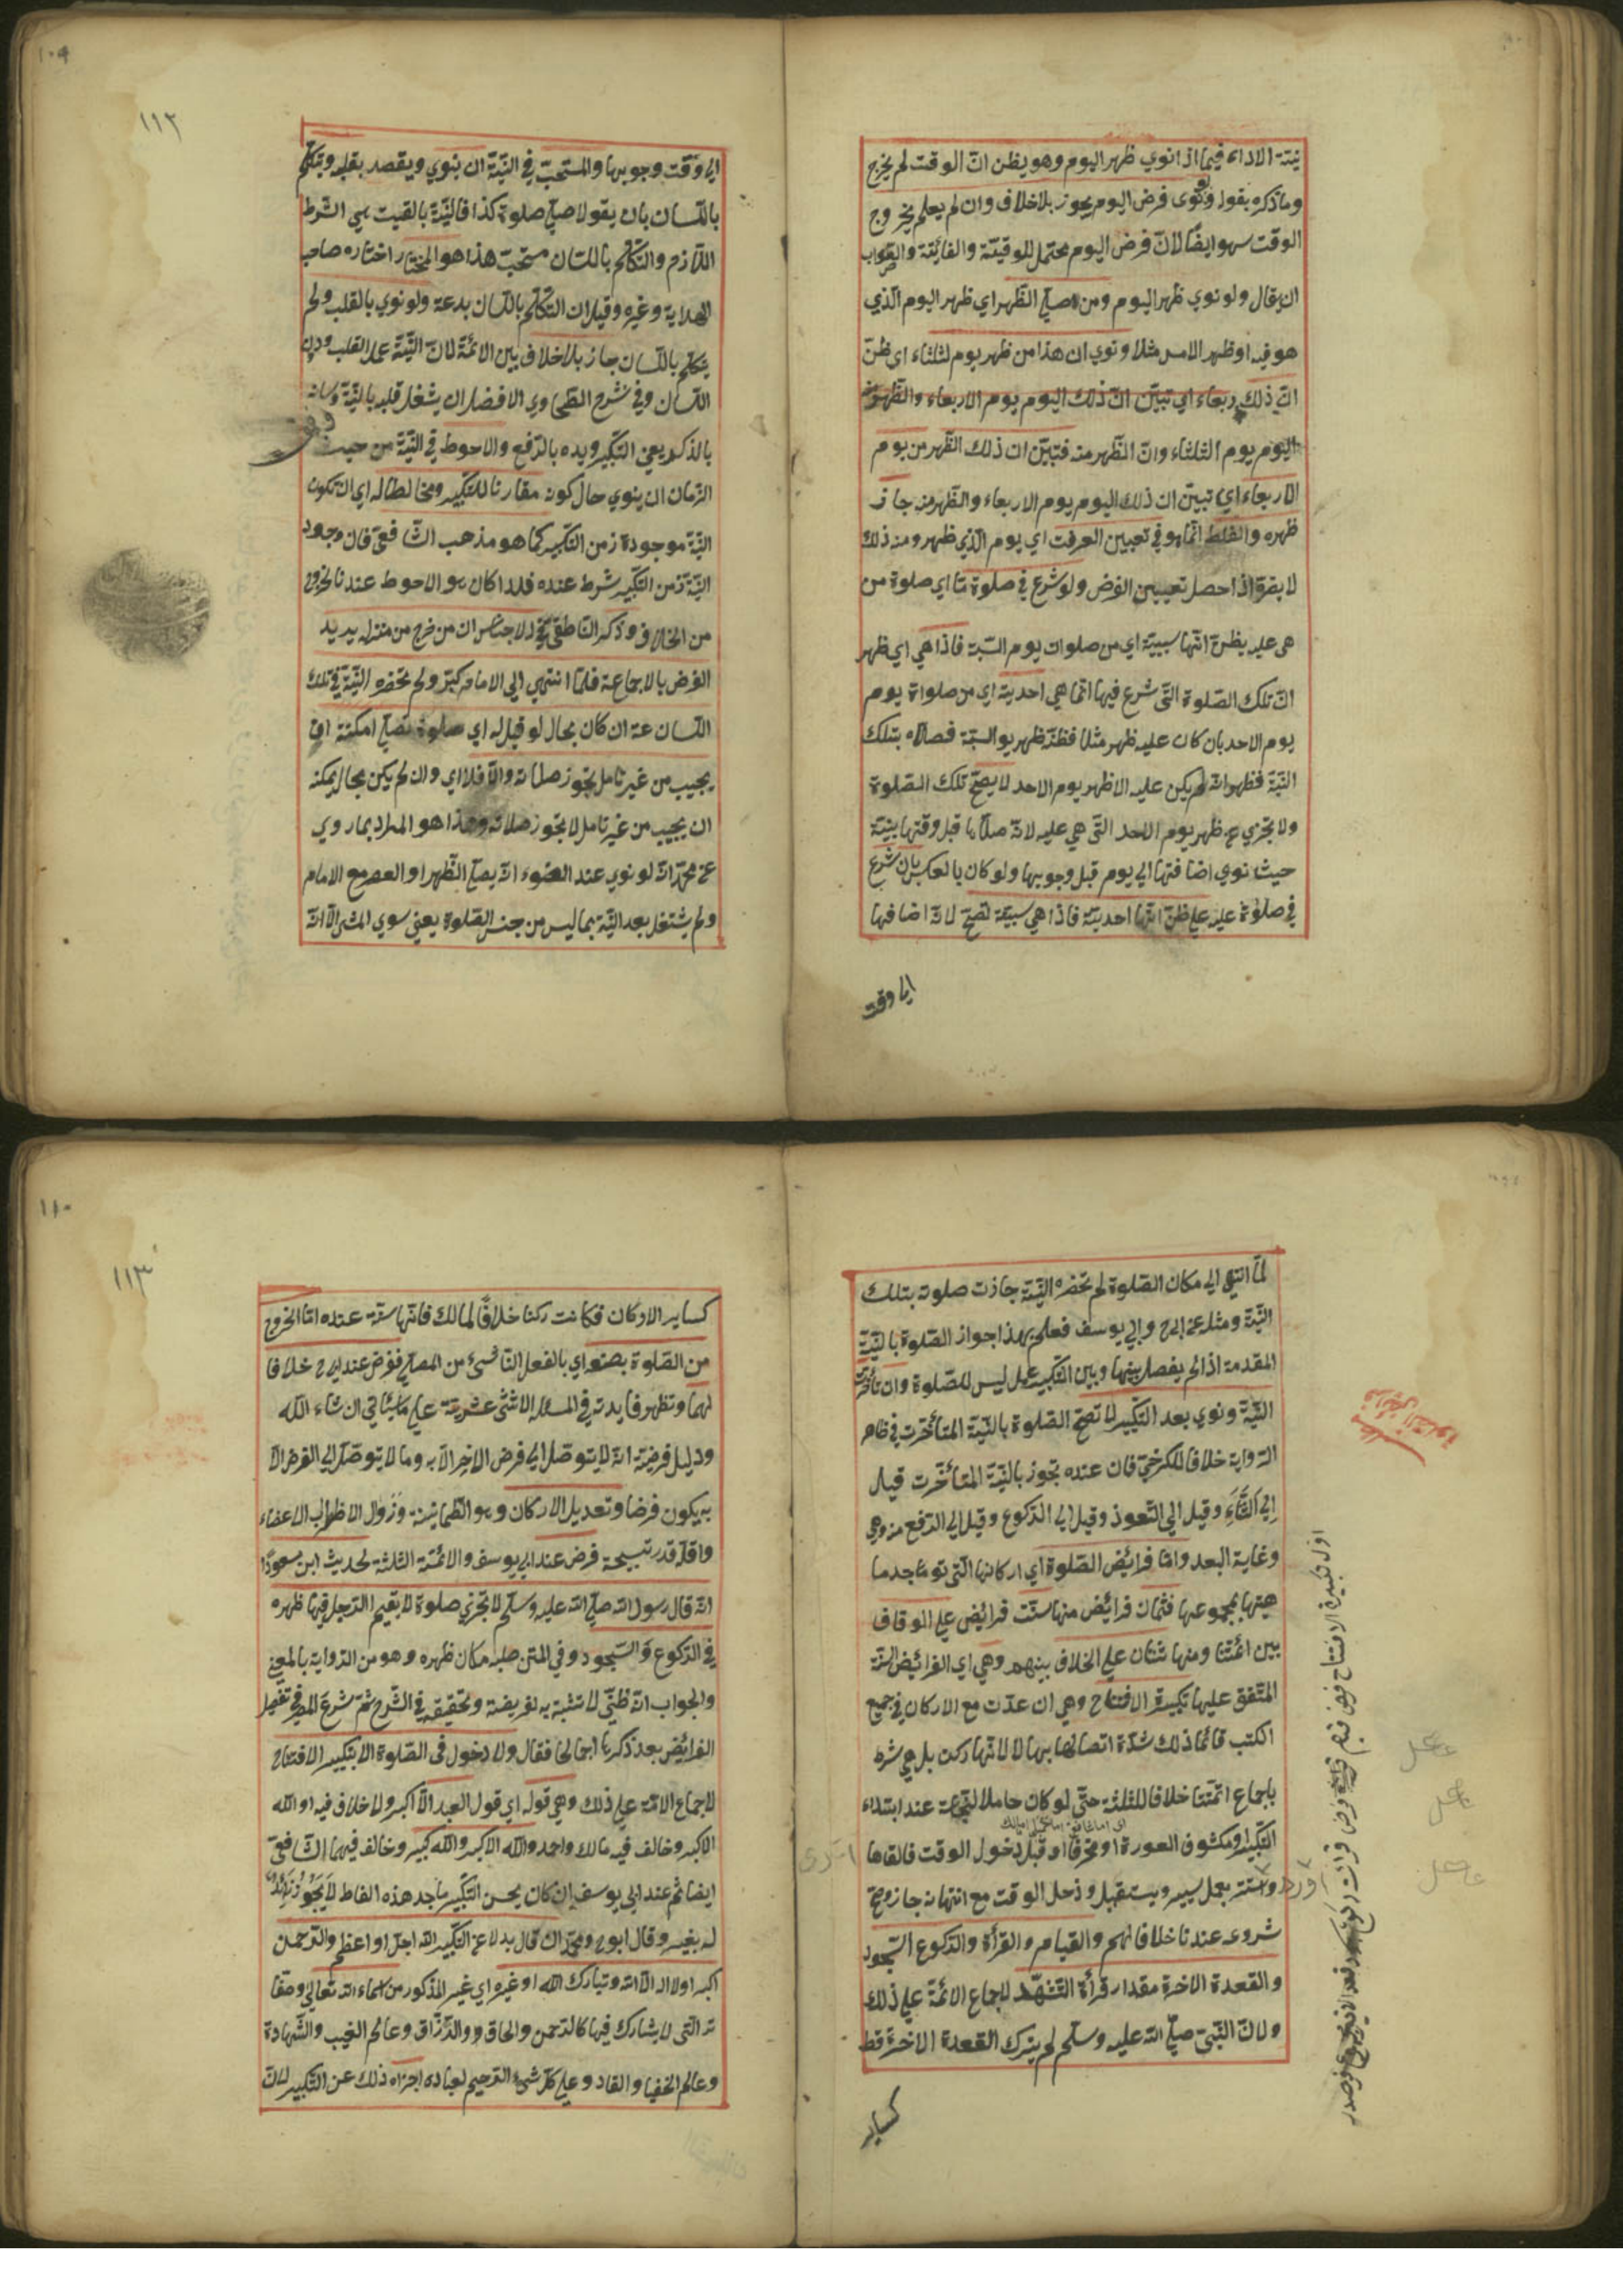 نيّة الاداء فيما اذا نوي ظهر اليوم وهو يظن انّ الوقت لم يخرج
وما ذكره بقوله ونوى فرض اليوم يجوز بلا خلاف وان لم يعلم بخروج
الوقت سهو ايضًا لانّ فرض اليوم محتمل للوقتيّة والفائتة والصّواب
ان يقال ولو نوي ظهر اليوم ومن صلّي الظّهر اي ظهر اليوم الّذي
هو فيه او ظهر الامس مثلا ونوي ان هذا من ظهر يوم لثلثاء اي ظنّ
انّ ذلك اي تبيّن انّ ذلك اليوم يوم الاربعاء والظّهر
اليوم يوم الثلثاء وانّ الظّهر منه فتبيّن ان ذلك الظّهر من يوم
الاربعاء اي تبيّن ان ذلك اليوم يوم الاربعاء والظّهر منه جاز
ظهره والغلط انّما هو في تعيين الوقت اي يوم الّذي ظهر ومنه ذلك
لا يضره اذا حصل تعيين الفرض ولو شرع في صلوة مّا اي صلوة من
هى عليه يظنّ انّها سبتيّة اي من صلوات يوم السّبة فاذا هي اي ظهر
انّ تلك الصّلوة التّى شرع فيها انّما هي احدية اي من صلواة يوم
يوم الاحد بان كان عليه ظهر مثلا فظنّه ظهر يوالسّبة فصلّاه بتلك
النيّة فظهر انّه لم يكن عليه الا ظهر يوم الاحد لا يصحّ تلك الصّلوة
ولا تجزي عن ظهر يوم الاحد التّي هي عليه لانّه صلّاها قبل وقتها بنيّة
حيث نوي اضافتها الي يوم قبل وجوبها ولو كان بالعكس بان شرع
في صلوة عليه علي ظنّ انّها احديّة فاذا هي سبتيّة تصّح لانّه اضافها
ايا وقت
١٠٩
١١٢
ايا وقت وجوبها والمستحبّ في النيّة ان ينوي ويقصد بقلبه ويتكلّم
باللّسان بان يقول اصلّي صلوة كذا فالنيّة بالقلب هي الشّرط
اللّازم والتكلّم باللّسان مستحبّ هذا هو المختار اختاره صاحب
الهداية وغيره وقيل ان التكلّم باللّسان بدعة ولو نوي بالقلب ولم
يتكلّم باللّسان جاز بلا خلاف بين الائمّة لانّ النيّة عمل القلب دون
اللّسان وفي شرح الطّحاوي الافضل ان يشغل قلبه بالنيّة ولسانه
بالذكر يعني التكبير ويده بالرّفع والاحوط في النيّة من حيث
الزّمان ان ينوي حال كونه مقارنا للتكبير ومخالطا له اي ان تكون
النيّة موجودة زمن التكبير كما هو مذهب الشّافعيّ فان وجود
النيّة زمن التكبير شرط عنده فلذا كان هو الاحوط عندنا للخروج
من الخلاف وذكر النّاطفيّ في الاجناس ان من خرج من منزله يريد
الفرض بالاجماعة فلمّا انتهي الي الامام كبّر ولم تحضره النيّة في تلك
السّاعة ان كان بحال لو قيل له اي صلوة تصلّي امكنه ان
يجيب من غير تامل تجوز صلاته والّا فلا اي وان لم يكن بحال يمكنه
ان يجيب من غير تامل لا تجوز صلاته وهذا هو المراد بما روي
عن محمّد انّه لو نوي عند الوضوء انّه يصلّي الظّهر او العصر مع الامام
ولم يشتغل بعد النيّة بما ليس من جنس الصّلوة يعني سوي المشي الّا انّه
لمّا انتهي الي مكان الصّلوة لم تحضره النيّة جازت صلوته بتلك
النيّة ومثله عن ابي ح وابي يوسف فعلم بهذا جواز الصّلوة بالنيّة
المقدمة اذا لم يفصل بينها وبين التكبير عمل ليس للصّلوة وان تأخّرت
النيّة ونوي بعد التكبير لا تصّح الصّلوة بالنيّة المتأخّرت في ظاهر
الرّواية خلافا للكرخيّ فان عنده تجوز بالنيّة المتأخّرت قيل
إلي الثَّنَاءِ وقيل الي التّعوذ وقيل الي الرّكوع وقيل الي الرّفع منه وهي
وغاية البعد وامّا فرائض الصّلوة اي اركانها الّتي توجد ما
هيتها بمجموعها فثمان فرائض منها ستّ فرائض علي الوفاق
بين ائمّتنا ومنها ثنتان علي الخلاف بينهم وهي اي الفرائض السّتّة
المتّفق عليها تكبيرة الافتتاح وهي ان عدّت مع الاركان في جميع
الكتب فانّما ذلك شدّة اتصالها بها لا لانّها ركن بل هي شرط
باجماع ائمّتنا خلافا للثلثة حتّي لو كان حاملا للنّجاسة عند ابتداء
التكبير او مكشوف العورة او منحرفا او قبل دخول الوقت فالقاها
واستتر بعمل يسير ويستقبل ودخل الوقت مع انتهائه جاز وصحّ
شروعه عندنا خلافا لهم والقيام والقرأة والرّكوع السّجود
والقعدة الاخرة مقدار قرأة التّشهّد لاجماع الائمّة علي ذلك
ولانّ النّبيّ صلّي الله عليه وسلّم لم يترك القعدة الاخرة قط
كساير
١١٠
١١٣
كساير الاركان فكانت ركنا خلافًا لمالك فانّها سنّة عنده امّا الخروج
من الصّلوة بصنعه اي بالفعل النّاشئ من المصلّي فرض عند ابي ح خلافا
لهما وتظهر فايدته في المسئلة الاثنتي عشرية علي ما يأتي ان شاء الله
ودليل فرضيّته انّه لا يتوصّل الي فرض الاخر الّا به وما لا يتوصّل الي الفرض الّا
به يكون فرضا وتعديل الاركان وهو الطّمانينة وزوال الاظراب الاعضاء
واقلّه قدر تسبيحة فرض عند ابي يوسف والائمّة الثلثة لحديث ابن مسعودًا
انّه قال رسول الله صلّي الله عليه وسلّم لا تجزي صلوة لا يقيم الرّجل فيها ظهره
في الرّكوع وَالسّجود وفي المتن صلبه مكان ظهره وهو من الرّواية بالمعني
والجواب انّه ظنّيّ لا تثبت به لفريضة وتحقيقه في الشّرح ثمّ شرع المص في تفصيل
الفرائض بعد ذكرها اجمالا فقال ولا دخول في الصّلوة الا بتكبير الافتتاح
لاجماع الامّة علي ذلك وهي قوله اي قول العبد الله اكبر ولا خلاف فيه او الله
الاكبر وخالف فيه مالك واحمد والله الاكبر والله كبير وخالف فيهما الشّافعيّ
ايضا ثمّ عند ابي يوسف إن كان يحسن التكبير ما جد هذه الفاظ لَا يَجُوزُ
له بغيره وقال ابوح ومحمّد ان قال بدلا عن التكبير الله اجلّ او اعظم والرّحمن
اكبر او لا اله الّا الله وتبارك الله او غيره اي غير المذكور من اسماء الله تعالي وصفا
ته الّتي لا يشارك فيها كالرّحمن والخالق والرّزّاق وعالم الغيب والشّهادة
وعالم الخفيا والقادر علي كلّ شئ والرّحيم لعباده اجزاه ذلك عن التكبير لانّ